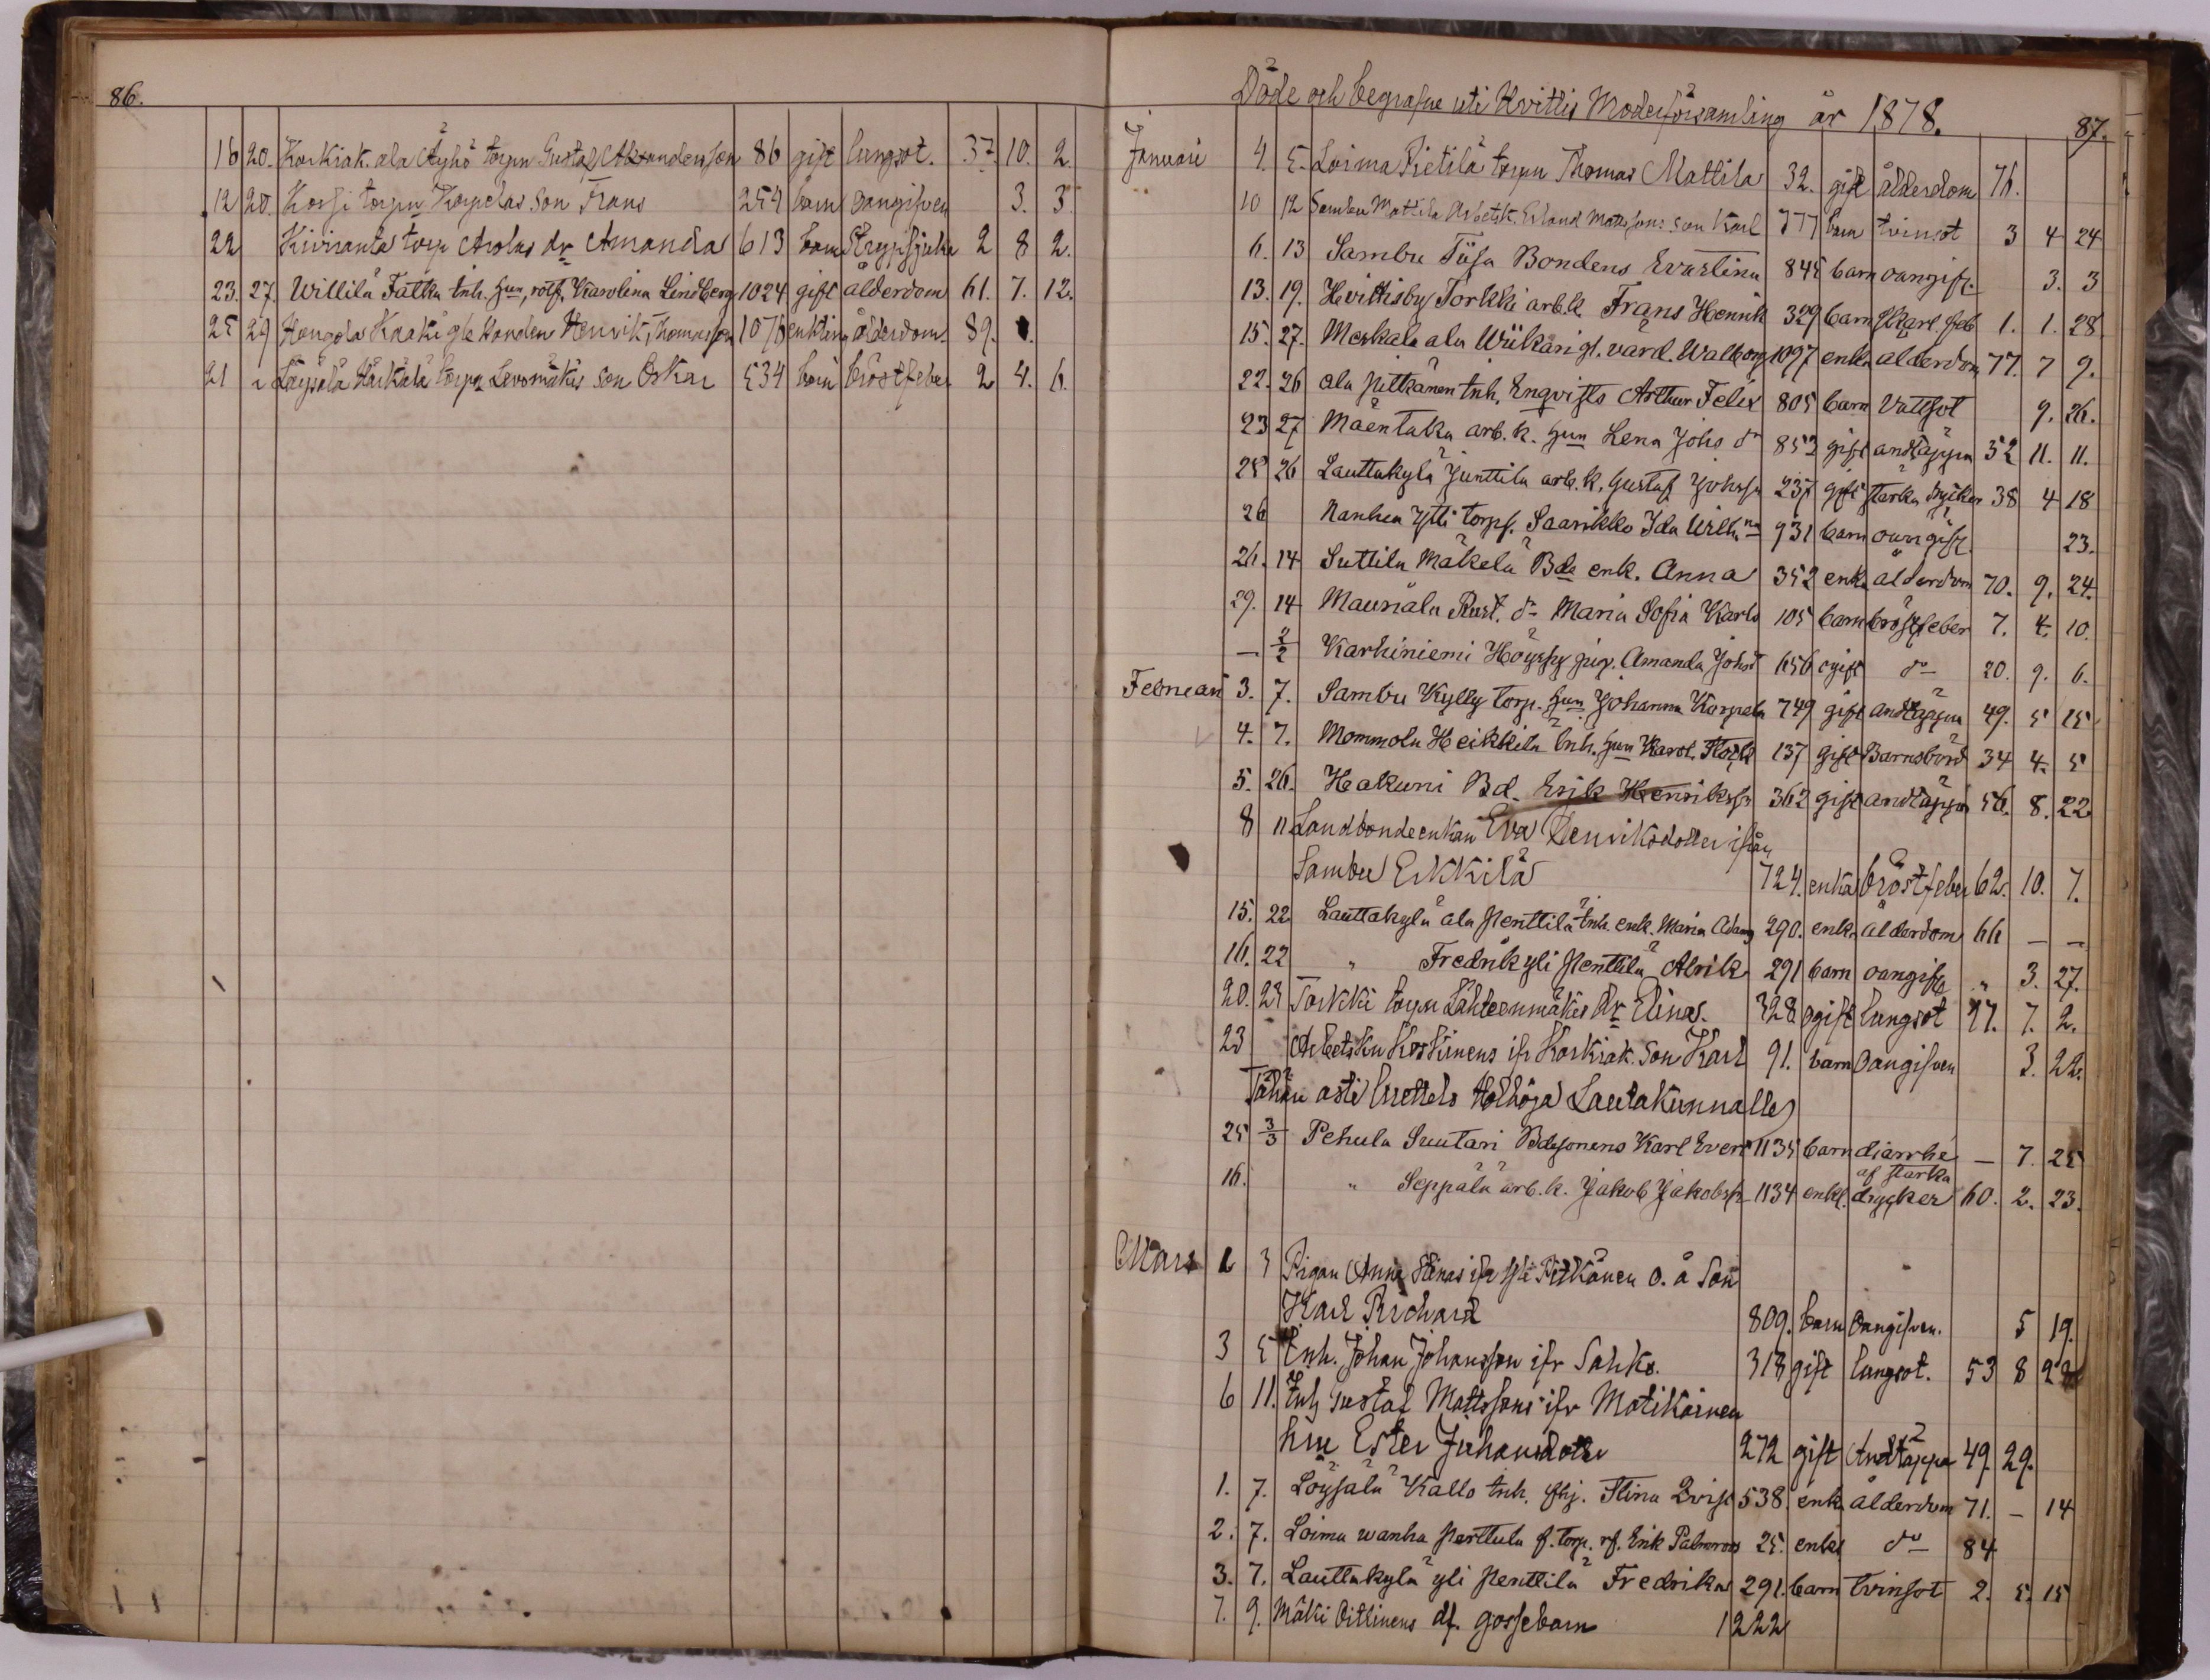 86.
16 20. Korkiak. ala Äyhö torpn Gustaf Alexandersson 86 gift lungsot. 37. 10. 2.
12 20. Korpi torpn Korpelas son Frans 254 barn oangifven 3. 3
22 Kiviranta torp Arolas dr Amanda 613 barn Strypsjuka 2 8 2.
23. 27. Willilä Fatka Inh. hun, rotf. Karolina Lindberg 1024 gift ålderdom 61. 7. 12.
25 29 Hongola Kaaki gle Henrik Thomasson 1076 enkling ålderdom 89.
21 Löysälä Härkälä torpn Levomäkis son Oskar 534 barn bröstfeber 2 4. 6.
Döde och begrafne uti Hvittis Moderförsamling år 1878.
87.
Januari 4. 5. Loima Pietilä torpn Thomas Mattila 32. gift ålderdom 76.
10 12 Sambu Mattila Arbetsk. Erland Mattssons son Karl 777 barn tvinsot 3 4 24
6. 13 Sambu Tüsa Bondens Evastina 845 barn oangift. 3. 3
13. 19. Hvittisby Torkki arb.k Frans Henrik 329 barn Skarl. feb 1. 1. 28
15. 27. Meskala ala Wiikari gl. vard. Walborg 1097 enka ålderdom 77. 7 9.
22. 26 ala Pitkänen Inh. Enqvists Arthur Felix 805 barn Vattsot 9. 26.
23 27 Mäentaka arb. k. hun Lena Johs dr 852 gift andtäppa 52 11. 11.
25 26 Lauttakylä Junttila arb. k. Gustaf Johssn 237 gift starka drycker 38 4 18
26 Nanhia Ylli torpf. Saarikko Ida Wilhna 931 barn oangift. 23.
26. 14 Suttila Mäkelä Bde enk. Anna 352 enka ålderdom 70. 9. 24.
29. 14 Mauriala Rust. dr Maria Sofia Karls 105 barn bröstfeber 7. 4. 10.
— 2/2 Karhiniemi Höyssy pig. Amanda Johsd 656 ogift do 20. 9. 6.
Februari 3. 7. Sambu Kylly torp. hun Johanna Korpela 749 gift andtäppa 49. 5 15
4. 7. Mommola Heikkilä Inh. hun Karol. 137 gift Barnsbörd 34 4. 5
5. 26. Hakuni Bd. Erik Henrikssn 362 gift andtäppa 56. 8. 22
8 11 Landbondeenkan Eva Henriksdotter ifrån
Sambu Erkkilä 724. enka bröstfeber 62. 10. 7.
15. 22 Lauttakylä ala Penttilä Inh. enk. Maria Adams 290. enka ålderdom 66 — —
16. 22 " Fredrik yli Penttilä Alrik 291 barn oangift " 3. 27.
20. 23 Torkki torpn Lähteenmäkis dr Elina. 328 ogift lungsot 17. 7. 2.
23 Arbetskn Koskinens ifr Korkiak. son Karl 91. barn oangifven 3. 22.
Tähän asti luettelo Holhoja Lautakunnalle
25 3/3 Pehula Suutari Bdesonens Karl Evert 1135 barn diarrhé — 7. 25
16. " Seppälä arb. k. Jakob Jakobssn 1134 enkl. af starka drycker 60. 2. 23.
Mars 1 3 Pigan Anna Stinas ifr Pitkänen o. ä son
Karl Richard 809. barn oangifven. 5 19.
3 5 Inh. Johan Johansson ifr Sahko. 318 gift lungsot. 53 8
6 11. Inh Gustaf Mattssons ifr Matikainen
hru Ester Juhansdotter 272 gift Andtäppa 49. 29.
1. 7. Löysälä Kallo Inh. Stina Qvist 538. enka ålderdom 71. — 14
2. 7. Loima wanha Perttula f. torp. rf. Erik Palmroos 25. enkl do 84
3. 7. Lauttakylä yli Penttilä Fredrika 291. barn tvinsot 2. 5. 15
7. 9. Mäki Oitlinens df. gossebarn 1222